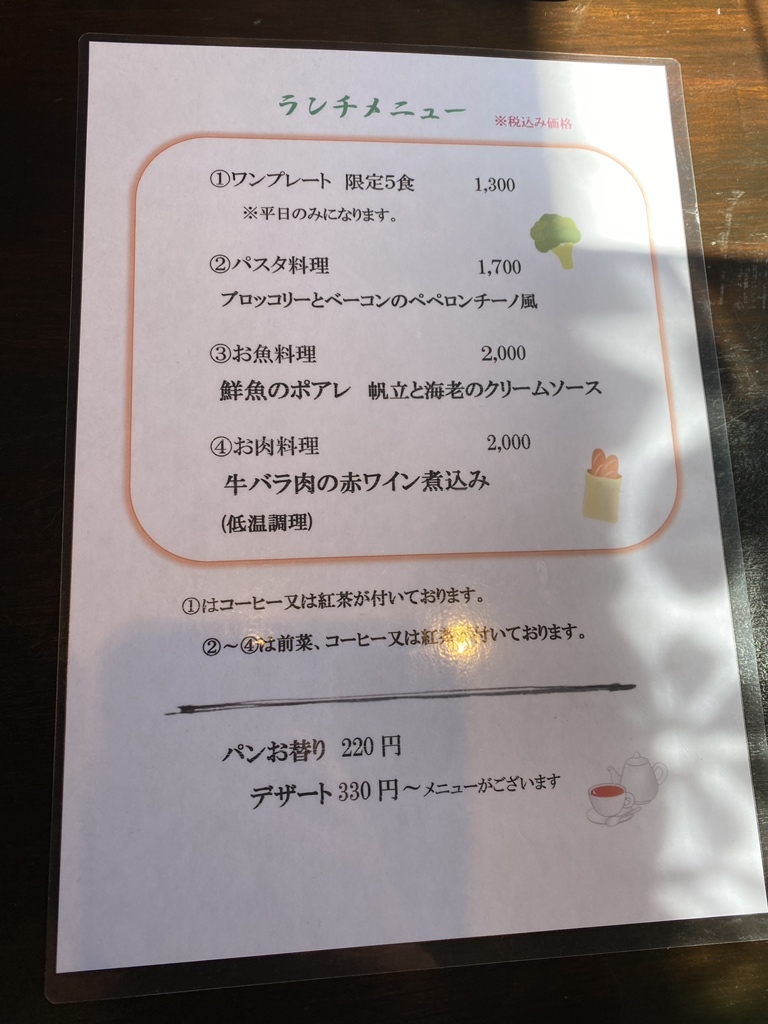 ランチメニュー ※税込み価格
①ワンプレート 限定5食 1,300
※平日のみになります。
②パスタ料理 1,700
ブロッコリーとベーコンのペペロンチーノ風
③お魚料理 2,000
鮮魚のポアレ 帆立と海老のクリームソース
④お肉料理 2,000
牛バラ肉の赤ワイン煮込み
(低温調理)
①はコーヒー又は紅茶が付いております。
②～④は前菜、コーヒー又は紅茶が付いております。
パンお替り 220円
デザート330円～メニューがございます